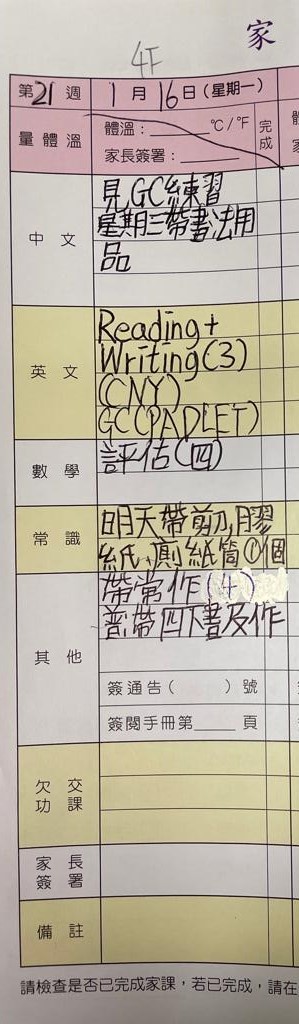 家
4F
第21週 1月16日(星期一)
量體溫 體溫:______°C/°F 完成
家長簽署:______
中文 見GC練習
星期三帶書法用
品
英文 Reading+
Writing(3)
(CNY)
GC(PADLET)
數學 評估(四)
常識 明天帶剪刀,膠
紙、廁紙筒①個
其他 帶常作(4)
普:帶四下書及作
簽通告( )號
簽閱手冊第____頁
欠交功課
家長簽署
備註
請檢查是否已完成家課,若已完成,請在